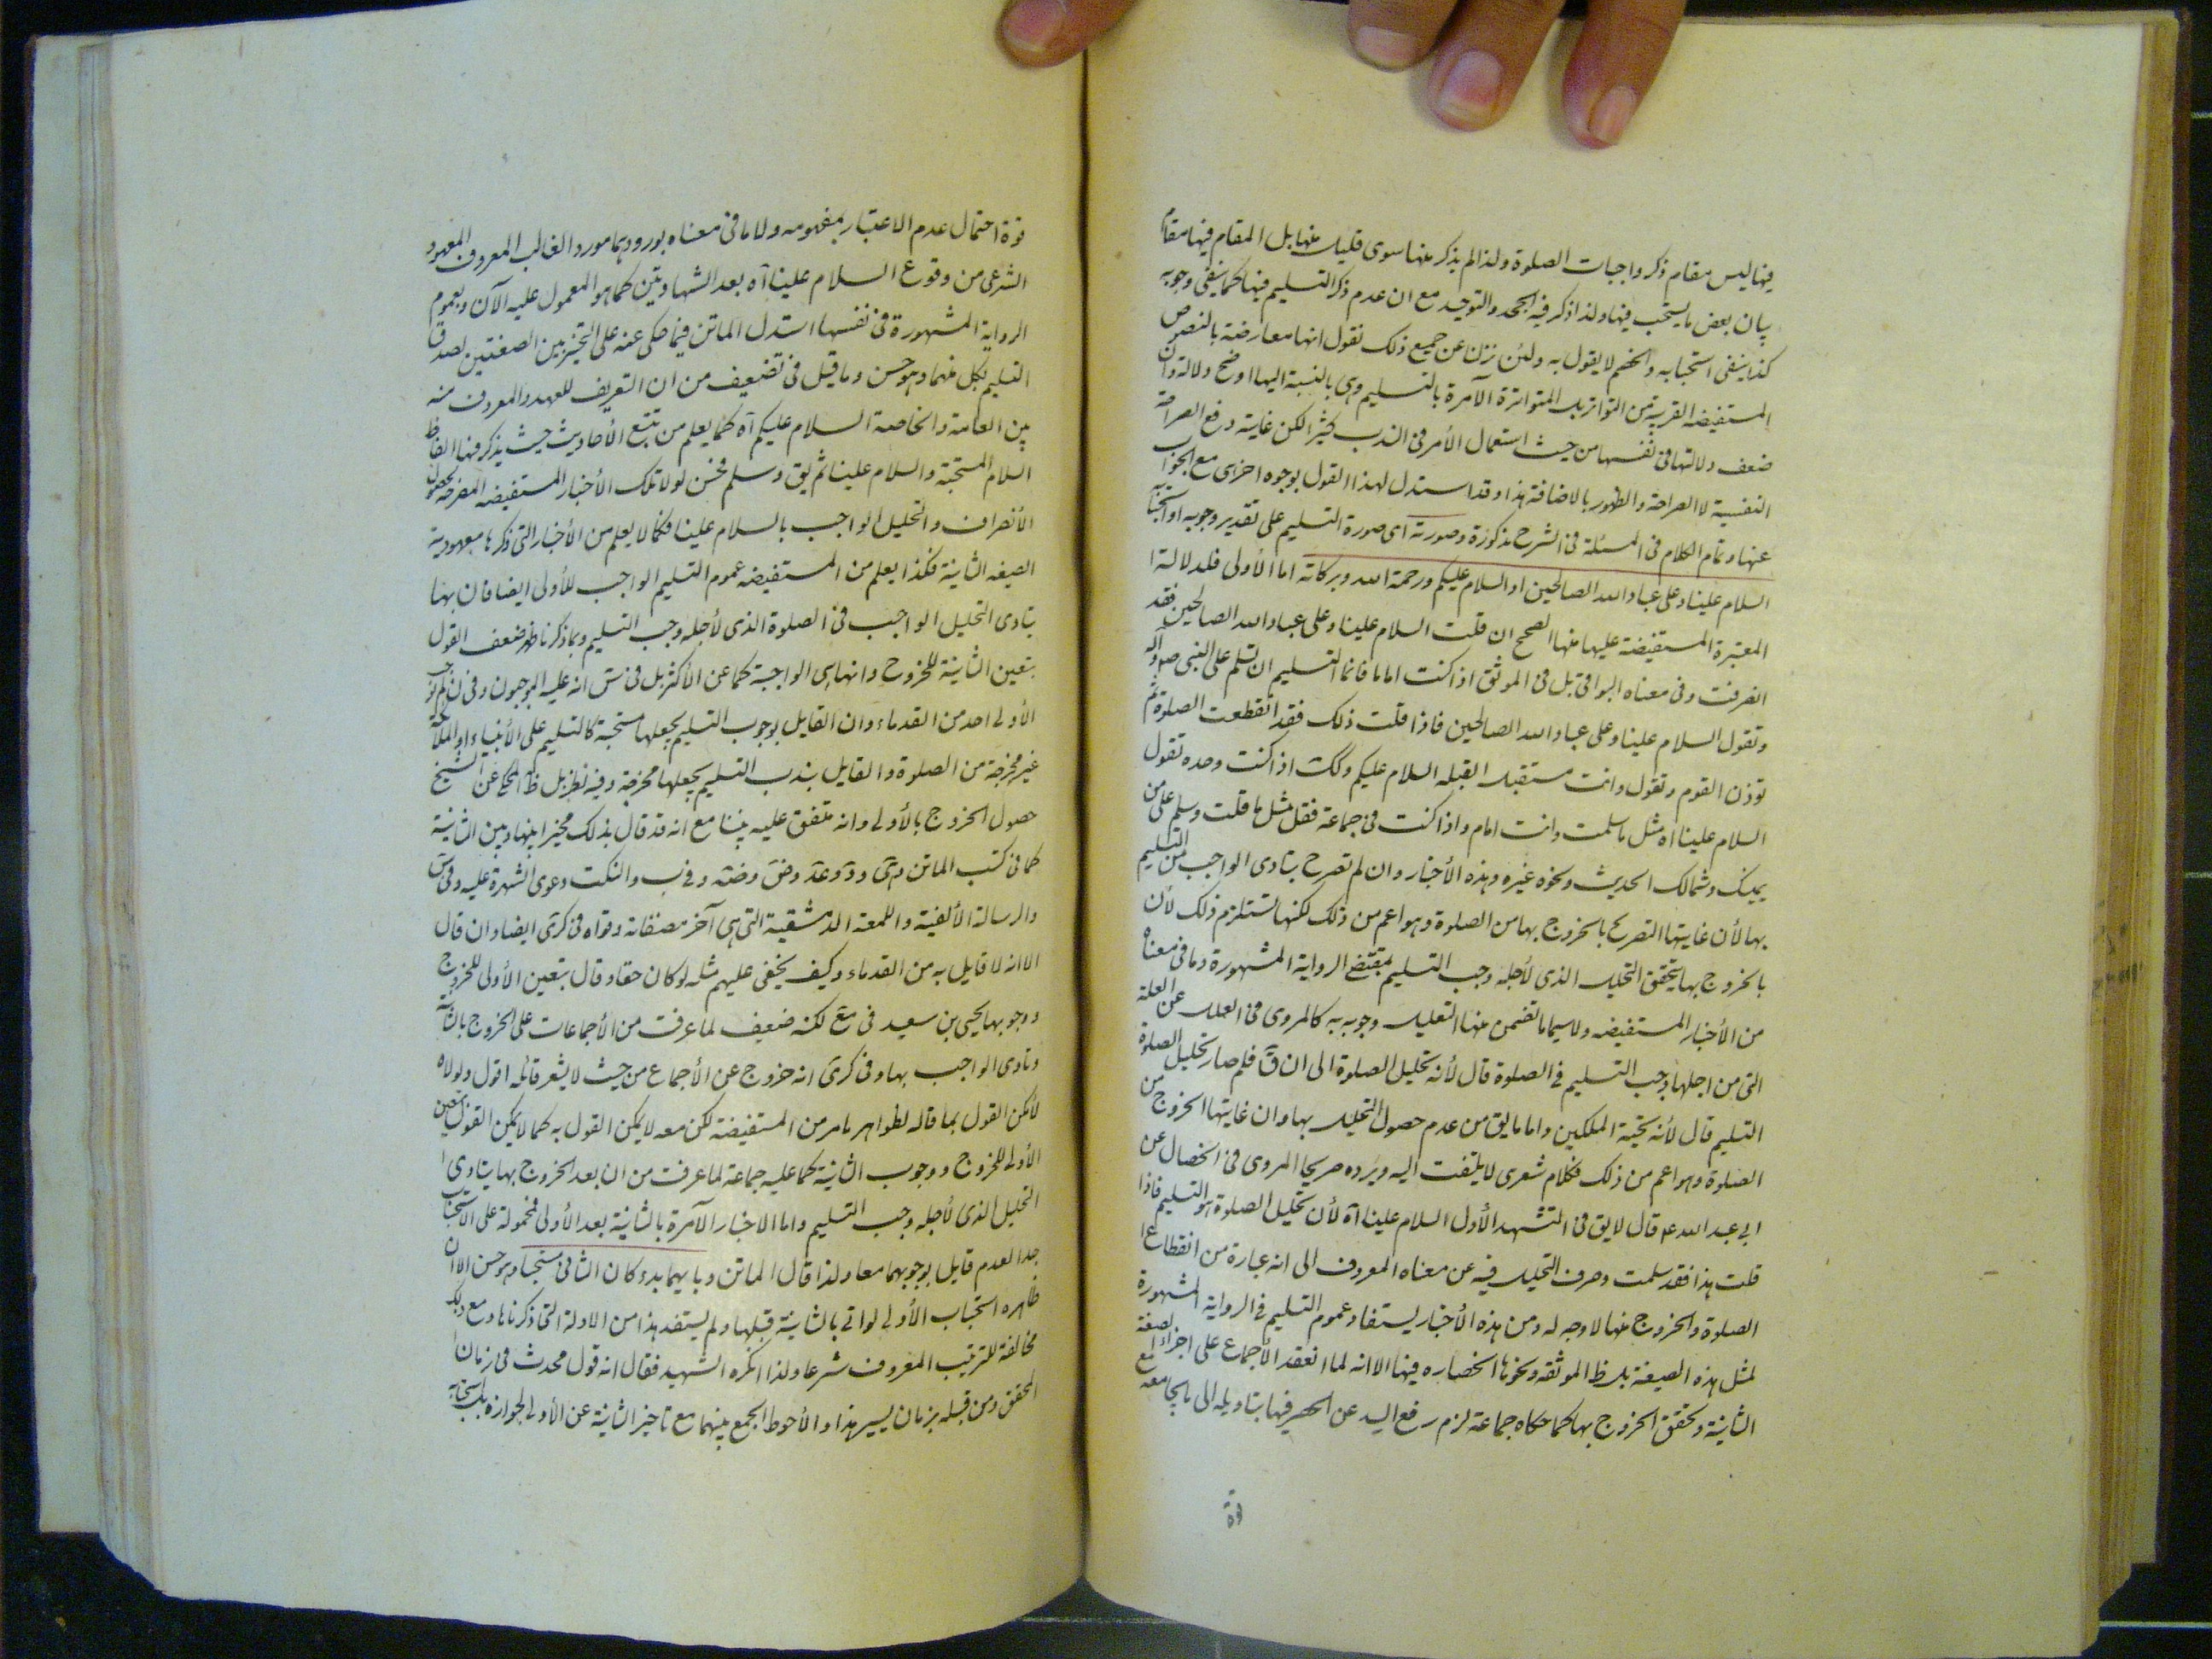 فيها ليس مقام ذكر واجبات الصلوة ولذا لم يذكر منها سوى قليل منها بل المقام فيها مقام
بيان بعض ما يستحب فيها ولذا ذكر فيه الحمد والتوحيد مع ان عدم ذكر التسليم فيها كما ينفى وجوبه
كذا ينفى استحبابه والخصم لا يقول به ولئن نزلنا عن جميع ذلك نقول انها معارضة بالنصوص
المستفيضة القريبة من التواتر بل المتواترة الآمرة بالتسليم وهى بالنسبة اليها اوضح دلالة وان
ضعف دلالتها فى نفسها من حيث استعمال الأمر فى الندب كثيرا لكن غايته دفع الصراحة
النفسية لا الصراحة والظهور بالاضافة هذا وقد استدل لهذا القول بوجوه اخرى مع الجواب
عنها وتمام الكلام فى المسئلة فى الشرح مذكورة وصورته اى صورة التسليم على تقدير وجوبه او استحبابه
السلام علينا وعلى عباد الله الصالحين او السلام عليكم ورحمة الله وبركاته اما الأولى فلدلالة ا
المعتبرة المستفيضة عليها منها الصحيح ان قلت السلام علينا وعلى عباد الله الصالحين فقد
انصرفت وفى معناه البواقى بل فى الموثق اذا كنت اماما فانما التسليم ان تسلم على النبى ص واله
وتقول السلام علينا وعلى عباد الله الصالحين فاذا قلت ذلك فقد انقطعت الصلوة ثم
توذن القوم وتقول وانت مستقبل القبلة السلام عليكم وكك اذا كنت وحده تقول
السلام علينا اه مثل ما سلمت وانت امام واذا كنت فى جماعة فقل مثل ما قلت وسلم على من
يمينك وشمالك الحديث ونحوه غيره وهذه الأخبار وان لم تصرح بتادى الواجب من التسليم
بها لأن غايتها التصريح بالخروج بها من الصلوة وهو اعم من ذلك لكنها تستلزم ذلك لأن
بالخروج بها يتحقق التحليل الذى لأجله وجب التسليم بمقتضى الرواية المشهورة وما فى معناه
من الأخبار المستفيضة ولا سيما ما تضمن منها التعليل وجوبه به كالمروى فى العلل عن العلة
التى من اجلها وجب التسليم فى الصلوة قال لأنه تحليل الصلوة الى ان ق فلم صار تحليل الصلوة
التسليم قال لأنه تحية الملكين واما ما يق من عدم حصول التحليل بها وان غايتها الخروج من
الصلوة وهو اعم من ذلك فكلام شعرى لا يلتفت اليه ويرده صريحا المروى فى الخصال عن
ابى عبد الله ع قال لا يق فى التشهد الأول السلام علينا اه لأن تحليل الصلوة هو التسليم فاذا
قلت هذا فقد سلمت وصرف التحليل فيه عن معناه المعروف الى انه عبارة من انقطاع ا
الصلوة والخروج منها لا وجه له ومن هذه الأخبار يستفاد عموم التسليم فى الرواية المشهورة
لمثل هذه الصيغة بل ظ الموثقة ونحوها انحصاره فيها الا انه لما انعقد الأجماع على اجزاء الصيغة
الثانية وتحقق الخروج بها كما حكاه جماعة لزم رفع اليد عن الحصر فيها بتاويله الى ما يجامعه مع
قوة
قوة احتمال عدم الاعتبار بمفهومه ولا ما فى معناه بورودهما مورد الغالب المعروف المعهود
الشرعى من وقوع السلام علينا آه بعد الشهادتين كما هو المعمول عليه الآن وبعموم
الرواية المشهورة فى نفسها استدل الماتن فيما حكى عنه على التخيير بين الصيغتين لصدق
التسليم بكل منهما وهو حسن وما قيل فى تضعيف من ان التعريف للعهد والمعروف منه
بين العامة والخاصة السلام عليكم آه كما يعلم من تتبع الأحاديث حيث يذكر فيها الفاظ
السلام المستحبة والسلام علينا ثم يق وسلم فحسن لولا تلك الأخبار المستفيضة المصرحة بحصول
الأنصراف والتحليل الواجب بالسلام علينا فكما لا يعلم من الأخبار التى ذكرها معهودية
الصيغة الثانية فكذا يعلم من المستفيضة عموم التسليم الواجب للأولى ايضا فان بها
يتادى التحليل الواجب فى الصلوة الذى لأجله وجب التسليم وبما ذكرنا ظهر ضعف القول
بتعين الثانية للخروج وانها هى الواجبة كما عن الأكثر بل فى س انه عليه الموجبون وفى ن لم يوجب
الأولى احد من القدماء وان القايل بوجوب التسليم يجعلها مستحبة كالتسليم على الأنبياء والملائكة
غير مخرجة من الصلوة والقايل بندب التسليم يجعلها مخرجة وفيه نظر بل ظ المحكى عن الشيخ
حصول الخروج بالأولى وانه متفق عليه بيننا مع انه قد قال بذلك مخيرا بينها وبين الثانية
كما فى كتب الماتن وفى ب والنكت دعوى الشهرة عليه وفى س
والرسالة الألفية واللمعة الدمشقية التى هى آخر مصنفاته وقواه فى كرى ايضا وان قال
الا انه لا قايل به من القدماء وكيف يخفى عليهم مثله لو كان حقا وقال بتعين الأولى للخروج
ووجوبها يحيى بن سعيد فى مع لكنه ضعيف لما عرفت من الأجماعات على الخروج بالثانية
وتادى الواجب بها وفى كرى انه خروج عن الأجماع من حيث لا يشعر قائله اقول ولولاه
لأمكن القول بما قاله لظواهر ما مر من المستفيضة لكن معه لا يمكن القول به كما لا يمكن القول بتعين
الأولى للخروج ووجوب الثانية كما عليه جماعة لما عرفت من ان بعد الخروج بها يتادى ا
التحليل الذى لأجله وجب التسليم واما الاخبار الآمرة بالثانية بعد الأولى فمحمولة على الاستحباب
جدا لعدم قايل بوجوبهما معا ولذا قال الماتن وبايهما بدء كان الثانى مستحبا وهو حسن الا ان
ظاهره استحباب الأولى لو اتى بالثانية قبلها ولم يستفد هذا من الادلة التى ذكرناها ومع ذلك
مخالفة للترتيب المعروف شرعا ولذا انكره الشهيد فقال انه قول محدث فى زمان ا
المحقق ومن قبله بزمان يسير هذا والأحوط الجمع بينهما مع تاخير الثانية عن الأولى لجوازه بل استحبابه